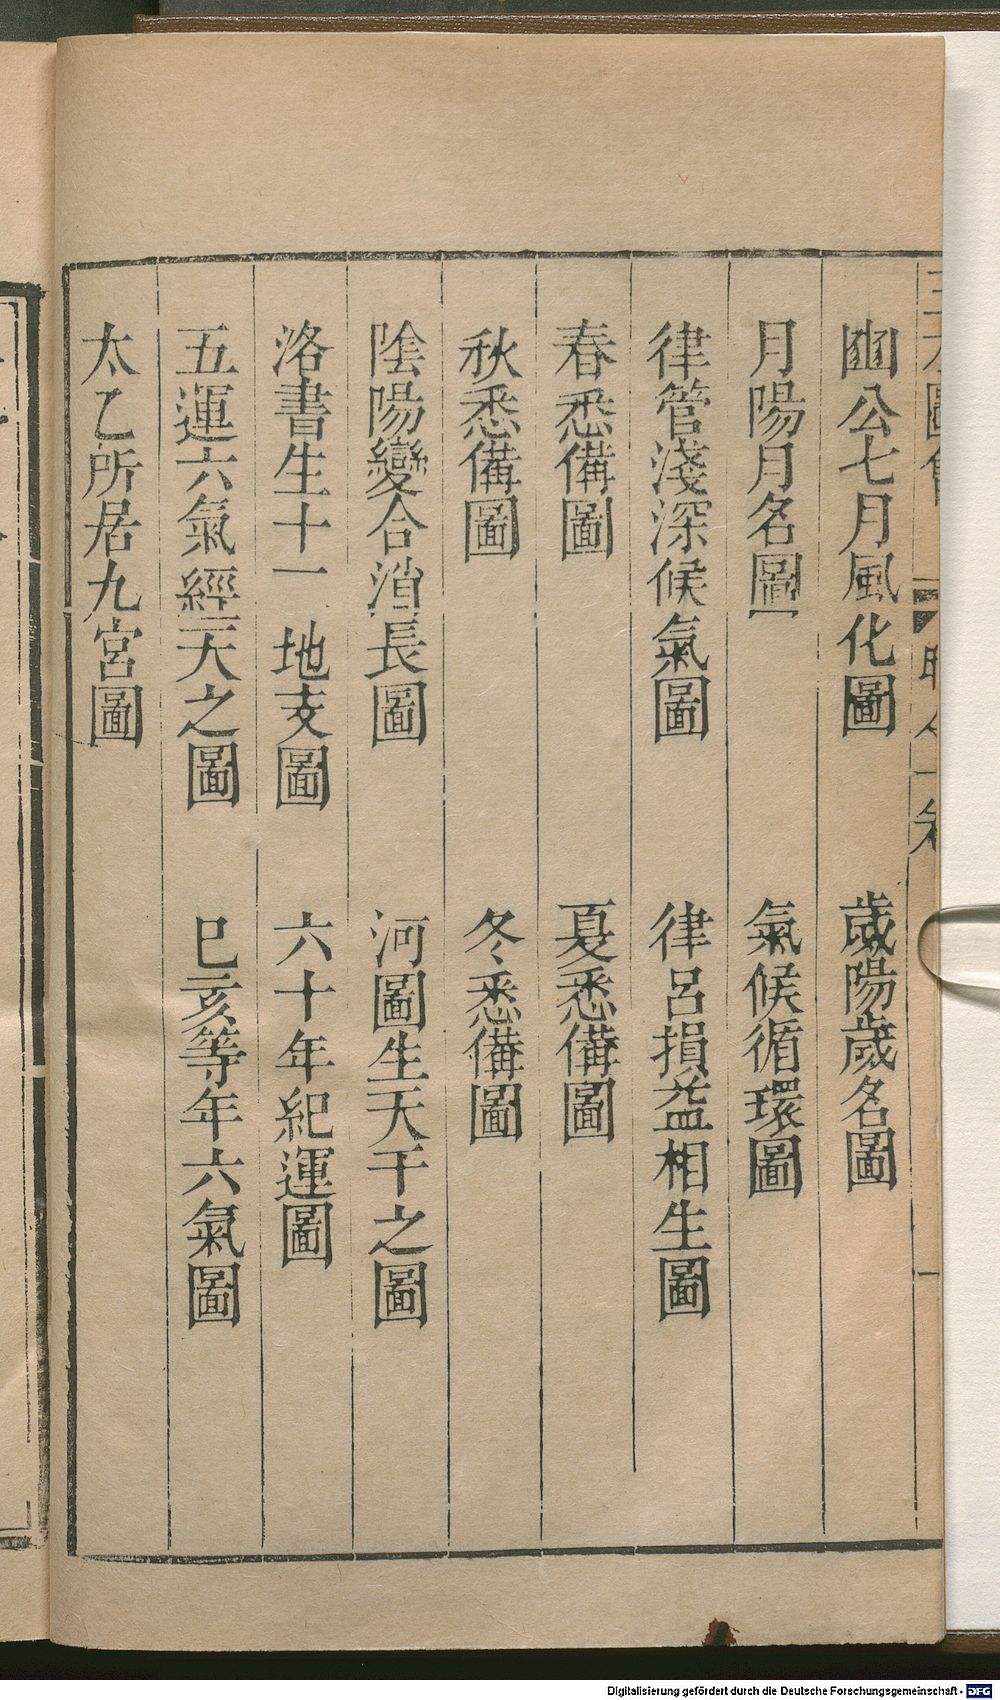 豳公七月風化圖　歲陽歲名圖
月陽月名圖　氣候循環圖
律管淺深候氣圖　律呂損益相生圖
春悉備圖　夏悉備圖
秋悉備圖　冬悉備圖
陰陽變合消長圖　河圖生天干之圖
洛書生十一地支圖　六十年紀運圖
五運六氣經天之圖　巳亥等年六氣圖
太乙所居九宮圖
Digitalisierung gefördert durch die Deutsche Forschungsgemeinschaft - DFG